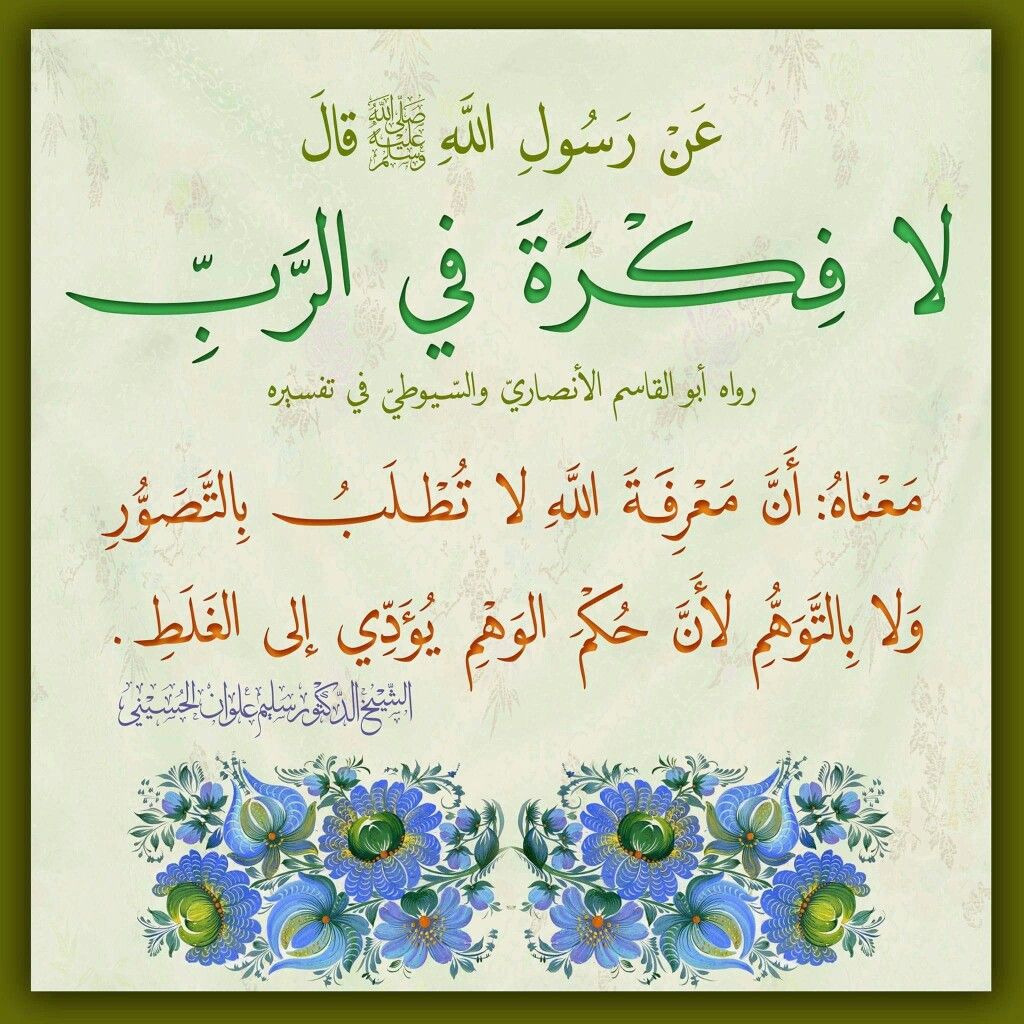 عَنْ رَسُولِ اللَّهِ ﷺ قالَ
لا فِكْرَةَ في الرَّبِّ
رواه أبو القاسم الأنصاريّ والسّيوطيّ في تفسيره
مَعْناهُ: أَنَّ مَعْرِفَةَ اللَّهِ لا تُطْلَبُ بِالتَّصَوُّرِ
وَلا بِالتَّوَهُّمِ لأَنَّ حُكْمَ الوَهْمِ يُؤَدِّي إلى الغَلَطِ.
الشَّيْخ الدُّكْتُور سَلِيم عُلْوان الحُسَيْنِي